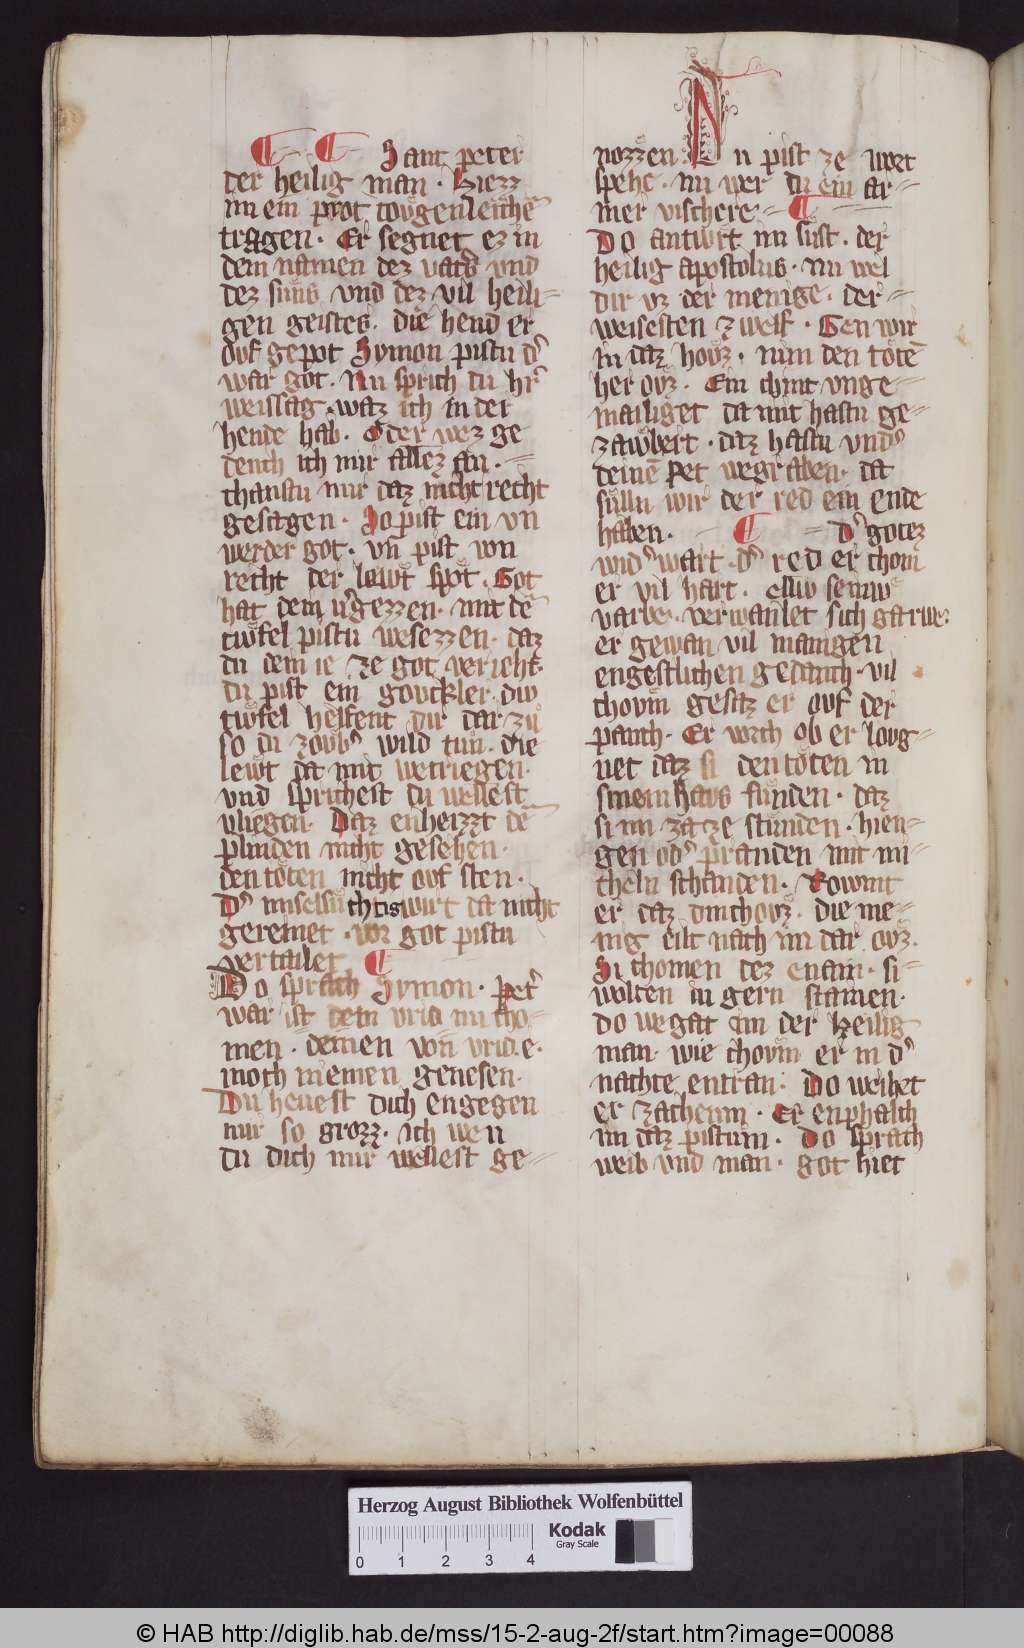 Sant peter
der heilig man · Hiezz
im ein prot tougenleichē
tragen · Er segnet ez in
dem namen dez vaters vnd
dez suns vnd dez vil heili=
gen geistes · die hend er
ouf gepot Symon pistu d'
war got · Nu sprich du hr'
weissag · waz ich in der
hende hab · Oder wez ge
dench ich mir allez an · =
chanstu mir daz nicht recht
gesagen · So pist ein vn
werder got · vn̄ pist von
recht der lewt spot · Got
hat dem v'gezzen · mit dē
tiwfel pistu wesezzen · daz
du dem ie ze got vericht·
du pist ein gouckler · diw
tiwfel helfent dir dar zů
so du zoub' wild tun · die
lewt da mit wetriegen·
vnd sprichest du wellest
vliegen · Daz enheizzt dē
plinden nicht gesehen ·
den toten nicht ouf sten ·
D' miselsuchtig wirt da nicht
gereinet · vor got pistu
vertailet
Do sprach Symon · Pet'
war ist dein vrid nu cho=
men · deinen von vrid · e ·
moch niemen genesen ·
Du hevest dich engegen
mir so grozz · ich wen
du dich mir wellest ge=
nozzen · Nu pist ze wort
spehe · nu wer du ein ar=
mer vischere =
Do antwrt im sust · der
heilig apostolus · nu wel
dir vz der menige · der=
weisesten zwelf · Gen wir
in daz houz · nim den totē
her ouz · Ein chint vnge=
mailiget da mit hastu ge=
zawbert · daz hastu vnd'
deinē Pet wegraben · dat
sulln wir der red ein ende
haben · = D' gotez
wid'wart · d' red erchom
er vil hart · Alliv seiniv
varbe · verwanlet sich garwe:
er gewan vil manigen
engestlichen gedanch · vil
choum gesaz er ouf der
panch · Er vorch ob er loug=
net daz si den toten in
sinem haus funden · daz
si im zatze stunden · hien=
gen od' pranden mit mi=
cheln schanden · Rowmt
er daz dinchouz · die me=
nig eilt nach im dar ouz·
Si chomen dez enain · si=
wolten in gern stainen·
do wegat im der Heilig
man · wie choum er in d'
nachte entran · Do weihet
er zacheum · Er enphalch
im daz pistum · Do sprach
weib vnd man · got hiet
Herzog August Bibliothek Wolfenbüttel
Kodak
Gray Scale
0 1 2 3 4
© HAB http://diglib.hab.de/mss/15-2-aug-2f/start.htm?image=00088